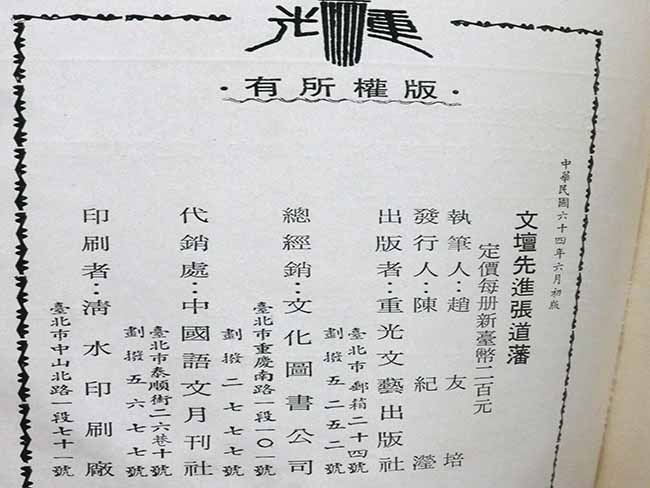 重光
版權所有
中華民國六十四年六月初版
文壇先進張道藩
定價每册新臺幣二百元
執筆人：趙友培
發行人：陳紀瀅
出版者：重光文藝出版社
臺北市郵箱二十四號
劃撥五二五二號
總經銷：文化圖書公司
臺北市重慶南路一段一〇一號
劃撥二七七七號
代銷處：中國語文月刊社
臺北市泰順街二六巷十號
劃撥五六七七號
印刷者：清水印刷廠
臺北市中山北路一段七十一號